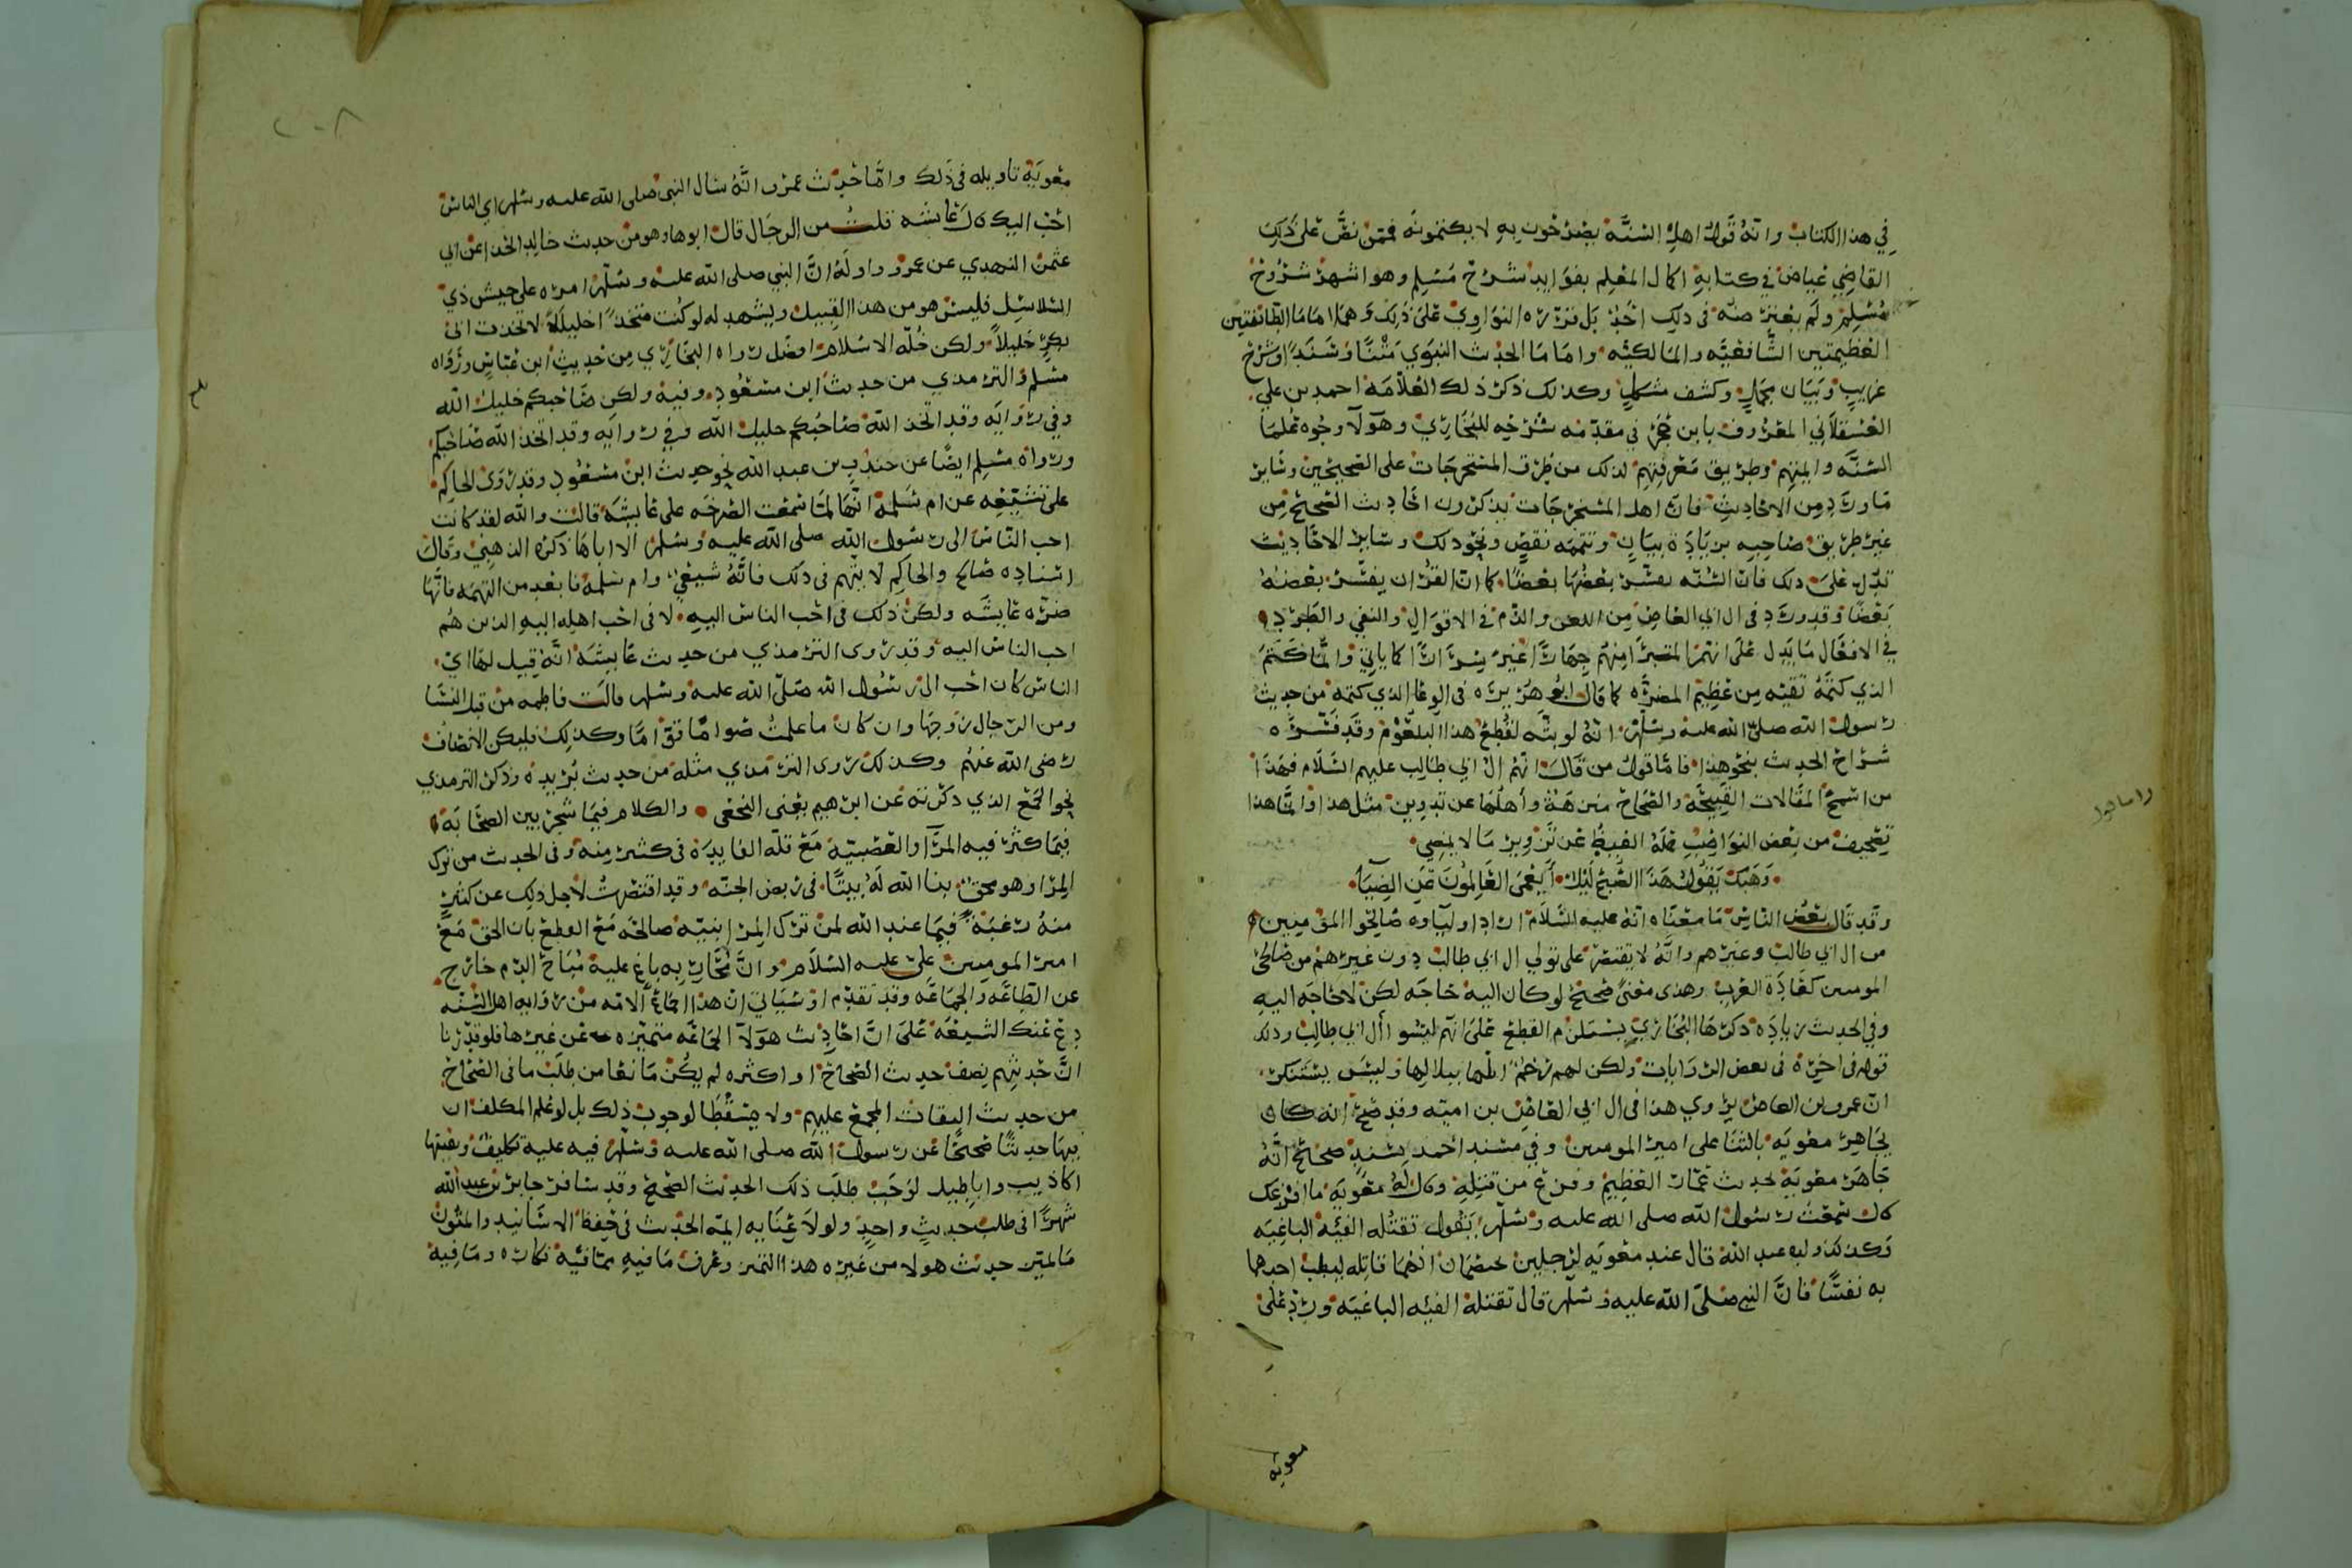 في هذا الكتاب وانه قول اهل السنة يصرحون به لا يكتمونه فممن نص على ذلك
القاضي عياض في كتابه اكمال المعلم بفوايد شرح مسلم وهو اشهر شروح
مسلم ولم يعتذر عنه في ذلك احد بل قرره النواوي على ذلك وهما اماما الطائفتين
العظيمتين الشافعيه والمالكيه واماما الحديث النبوي متنا وسندا وشرح
غريب وبيان مجمل وكشف مشكل وكذلك ذكر ذلك العلامة احمد بن علي
العسقلاني المعروف بابن حجر في مقدمه شرحه للبخاري وهولا وجوه علما
السنه وايمتهم وطريق معرفتهم لذلك من طرق المستخرجات على الصحيحين وساير
ما ورد من الاحاديث فان اهل المستخرجات يذكرون احاديث الصحيح من
غير طريق صاحبه بزيادة بيان وتتمه نقص ونحو ذلك وساير الاحاديث
تدل على ذلك فان السنه يفسر بعضها بعضا كما ان القران يفسر بعضه
بعضا وقد ورد في ال ابي العاص من اللعن والذم في الاقوال والنفي والطرد
في الافعال ما يدل على انهم المتبرا منهم جهارا غير سرا ا كما ياتي وانما كتم
الذي كتمه تقيه من عظيم المضره كما قال ابو هريره في الوعا الذي كتمه من حديث
رسول الله صلى الله عليه وسلم انه لو بثه لقطع هذا البلعوم وقد فسره
شراح الحديث بنحو هذا فاما قول من قال انهم ال ابي طالب عليهم السلام فهذا
من اسمج المقالات القبيحه والصحاح منزهة واهلها عن تدوين مثل هذا وانما هذا
تصحيف من بعض النواصب حمله الغيظ عن تزوير ما لا يمضي
وهبك تقول هذا الصبح ليل ايعمى العالمون عن الضيا
وقد قال بعض الناس ما معناه انه عليه السلام اراد اولياوه صالحوا المومنين
من ال ابي طالب وغيرهم وانه لا يقتصر على تولي ال ابي طالب دون غيرهم من صالحي
المومنين كعادة العرب وهذي معنى صحيح لو كان اليه حاجه لكن لا حاجه اليه
وفي الحديث زياده ذكرها البخاري يستلزم القطع على انهم ليسوا ال ابي طالب وذلك
قوله في اخره في بعض الروايات ولكن لهم رحم ابلها ببلالها وليس يستنكر
ان عمرو بن العاص يروي هذا في ال ابي العاص بن اميه وقد صح انه كان
يجاهر معويه بالثنا على امير المومنين وفي مسند احمد بسند صحيح انه
جاهر معوية بحديث عمار العظيم وفزع من قتله وقال له معويه ما افزعك
قال سمعت رسول الله صلى الله عليه وسلم يقول تقتله الفيه الباغيه
وكذلك ولده عبد الله قال عند معويه لرجلين يختصمان انهما قاتله ليطب احدهما
به نفسا فان النبي صلى الله عليه وسلم قال تقتله الفيه الباغيه ورد على
معويه
٢٠٨
معوية تاويله في ذلك واما حديث عمرو انه سال النبي صلى الله عليه وسلم اي الناس
احب اليك قال عايشه قلت من الرجال قال ابوها وهو من حديث خالد الحذا عن ابي
عثمن النهدي عن عمرو واوله ان النبي صلى الله عليه وسلم امره على جيش ذي
السلاسل فليس هو من هذا القبيل ويشهد له لو كنت متخذا خليلا لاتخذت ابى
بكر خليلا ولكن خلة الاسلام افضل رواه البخاري من حديث ابن عباس ورواه
مسلم والترمذي من حديث ابن مسعود وفيه ولكن صاحبكم خليل الله
وفي روايه وقد اتخذ الله صاحبكم خليل الله وفي روايه وقد اتخذ الله صاحبكم
ورواه مسلم ايضا عن جندب بن عبد الله نحو حديث ابن مسعود وقد روى الحاكم
على تشيعه عن ام سلمة انها لما سمعت الصرخه على عايشه قالت والله لقد كانت
احب الناس الى رسول الله صلى الله عليه وسلم الا اباها ذكره الذهبي وقال
اسناده صالح والحاكم لا يتهم في ذلك فانه شيعي وام سلمة فابعد من التهمه فانها
ضره عايشه ولكن ذلك في احب الناس اليه لا في احب اهله اليه الذين هم
احب الناس اليه وقد روى الترمذي من حديث عايشه انه قيل لها اي
الناس كان احب الى رسول الله صلى الله عليه وسلم قالت فاطمه من قبل النسا
ومن الرجال زوجها وان كان ما علمت صواما قواما وكذلك فليكن الانصاف
رضي الله عنهم وكذلك روى الترمذي مثله من حديث بريده وذكر الترمذي
نحو الجمع الذي ذكرته عن ابرهيم يعني النخعي والكلام فيما شجر بين الصحابه
فيما كثر فيه المرا والعصبية مع قله الفايده في كثير منه وفي الحديث من ترك
المرا وهو محق بنا الله له بيتا في ربض الجنه وقد اقتصرت لاجل ذلك عن كثير
منه رغبة فيما عند الله لمن ترك المرا بنية صالحه مع القطع بان الحق مع
امير المومنين علي عليه السلام وان محاربه باغ عليه مباح الدم خارج
عن الطاعه والجماعه وقد تقدم او سياتي ان هذا اجماع الامه من روايه اهل السنه
دع عنك الشيعة على ان احاديث هولا الجماعه متميزه عن غيرها فلو قدرنا
ان حديثهم نصف حديث الصحاح او اكثره لم يكن مانعا من طلب ما في الصحاح
من حديث الثقات المجمع عليهم ولا مسقطا لوجوب ذلك بل لو علم المكلف ان
فيها حديثا صحيحا عن رسول الله صلى الله عليه وسلم فيه عليه تكليف وبقيتها
اكاذيب واباطيل لوجب طلب ذلك الحديث الصحيح وقد سافر جابر بن عبد الله
شهرا في طلب حديث واحد ولولا عنايه ايمة الحديث في حفظ الاسانيد والمتون
ما تميز حديث هولا من غيره هذا التميز وعرف ما فيه مما فيه نكاره وما فيه